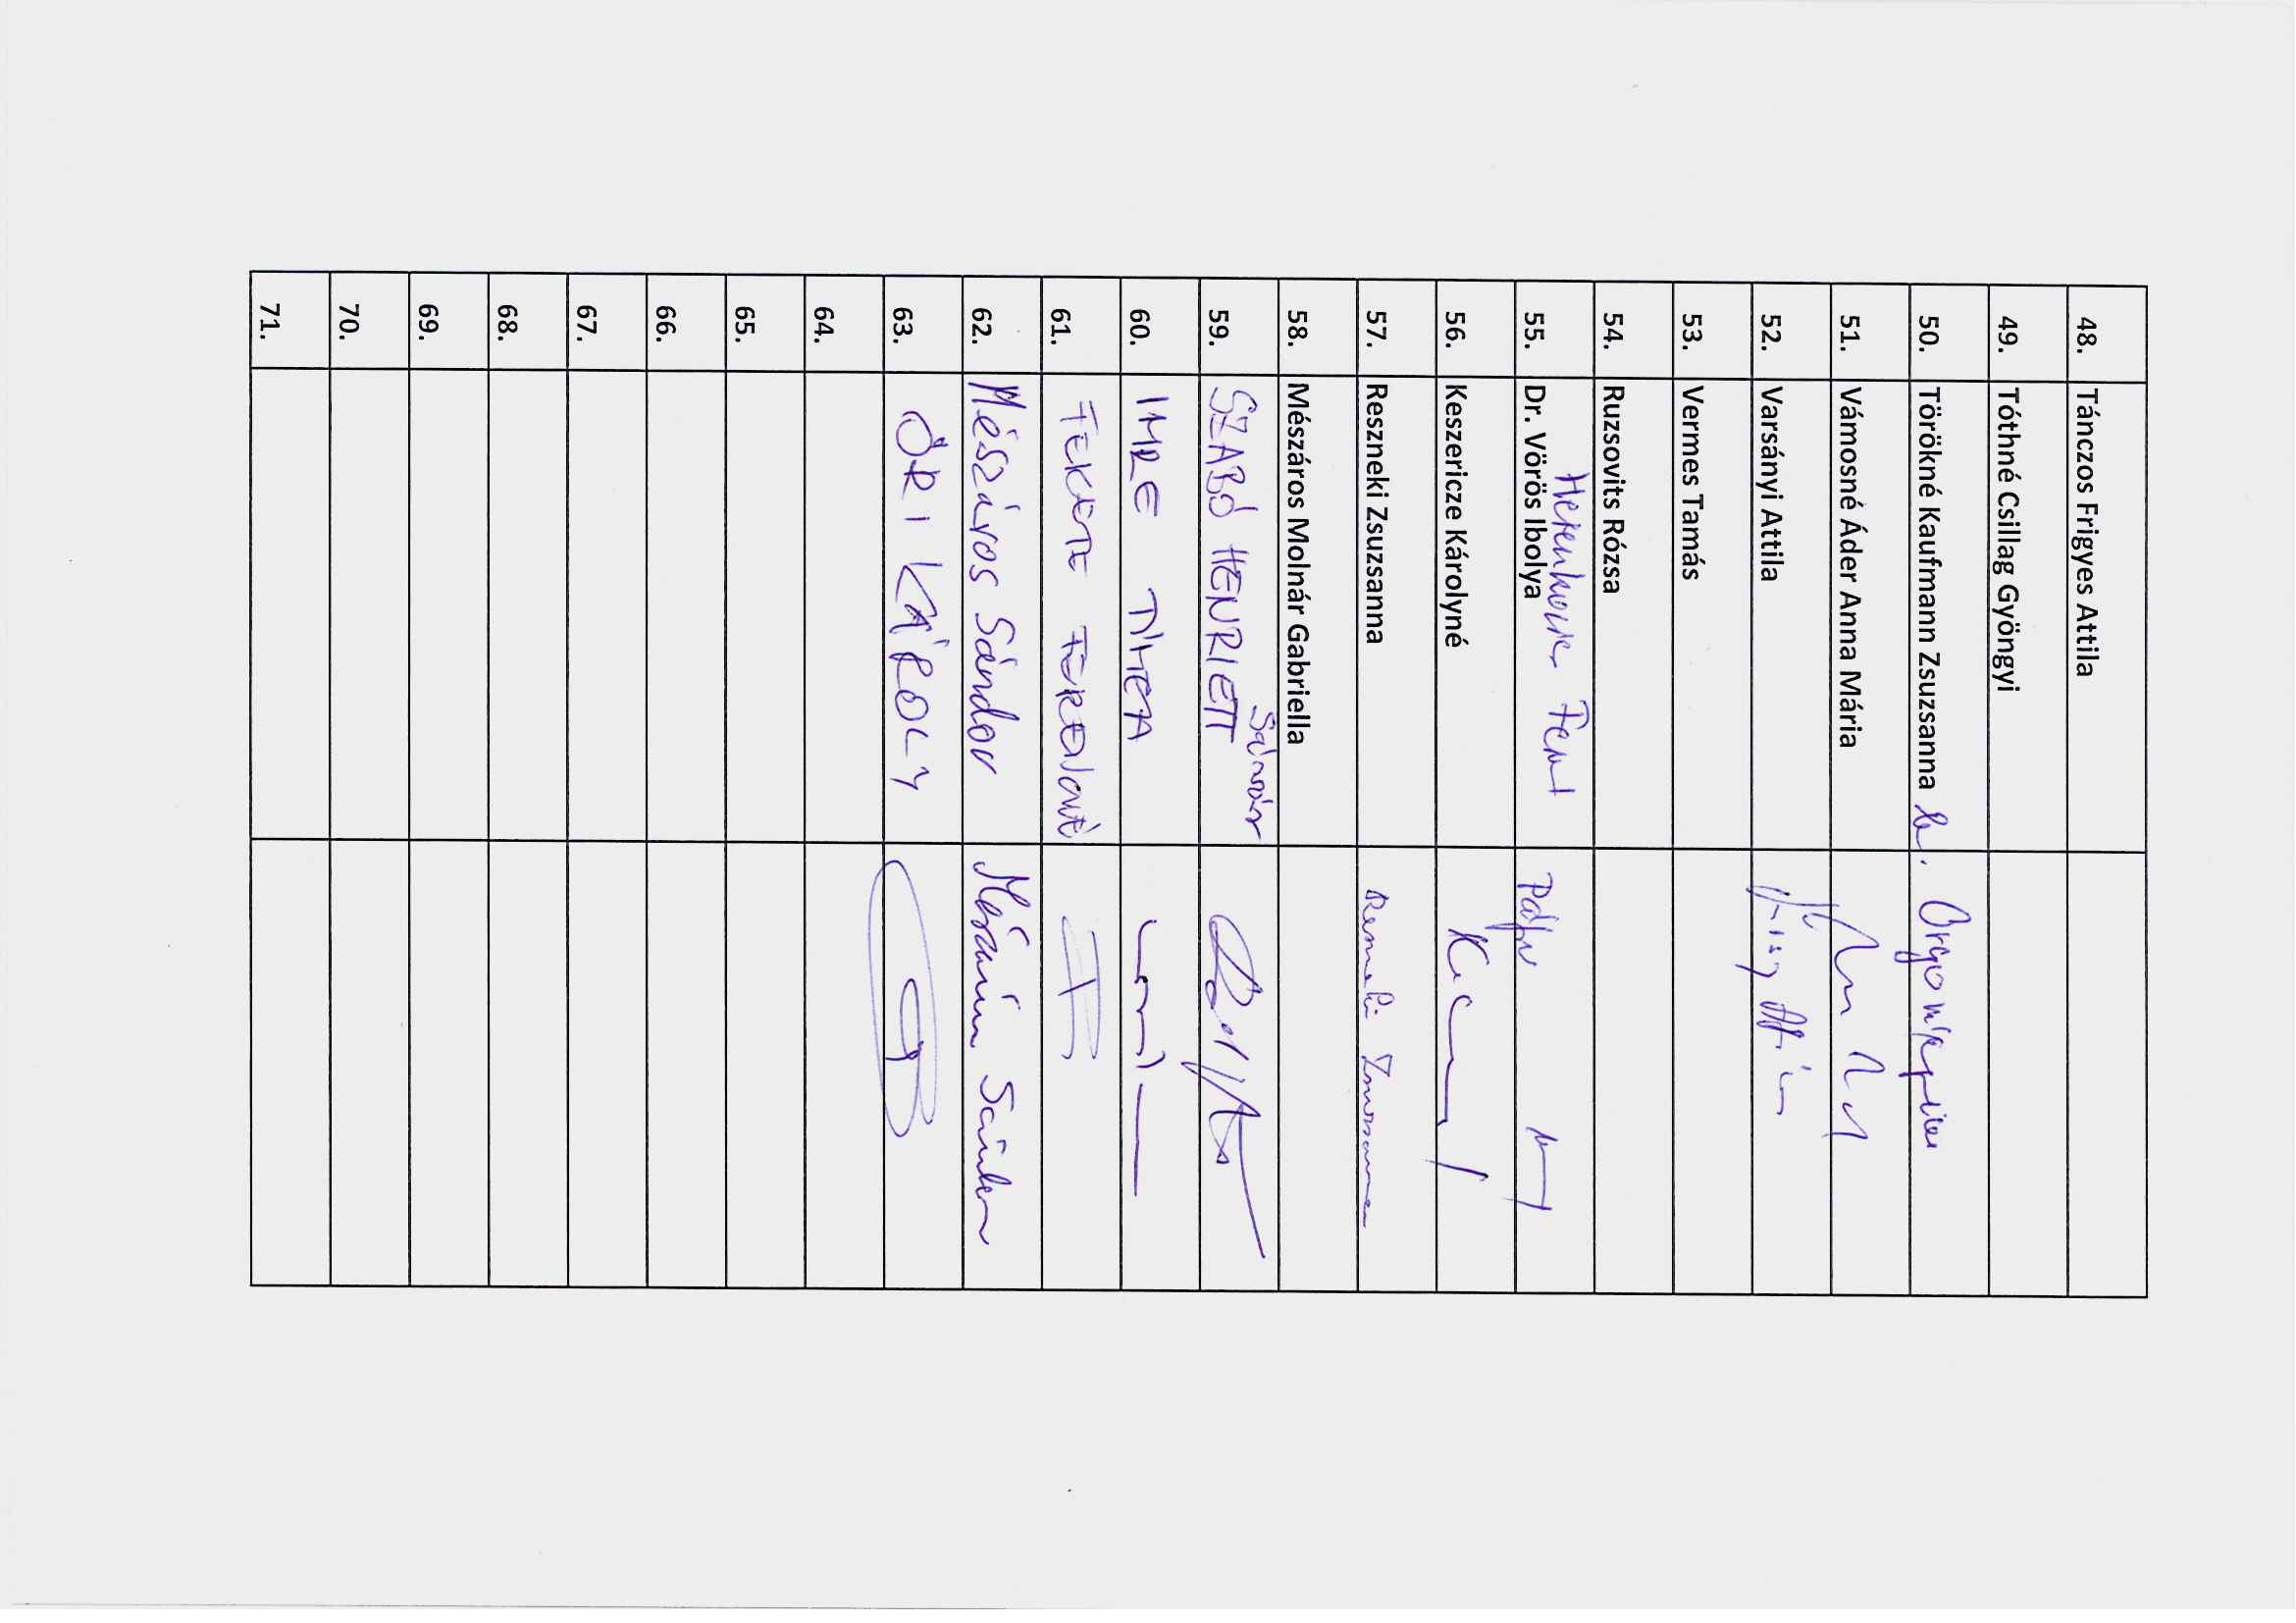 48. Tánczos Frigyes Attila
49. Tóthné Csillag Gyöngyi
50. Törökné Kaufmann Zsuzsanna
51. Vámosné Áder Anna Mária
52. Varsányi Attila
53. Vermes Tamás
54. Ruzsovits Rózsa
55. Dr. Vörös Ibolya
56. Keszericze Károlyné
57. Reszneki Zsuzsanna Reszneki Zsuzsanna
58. Mészáros Molnár Gabriella
Sárvár
59. SZABÓ HENRIETT
60. IMRE TÍMEA
61. FEKETE FERENCNÉ
62. Mészáros Sándor Mészáros Sándor
63. ŐRI KÁROLY
64.
65.
66.
67.
68.
69.
70.
71.